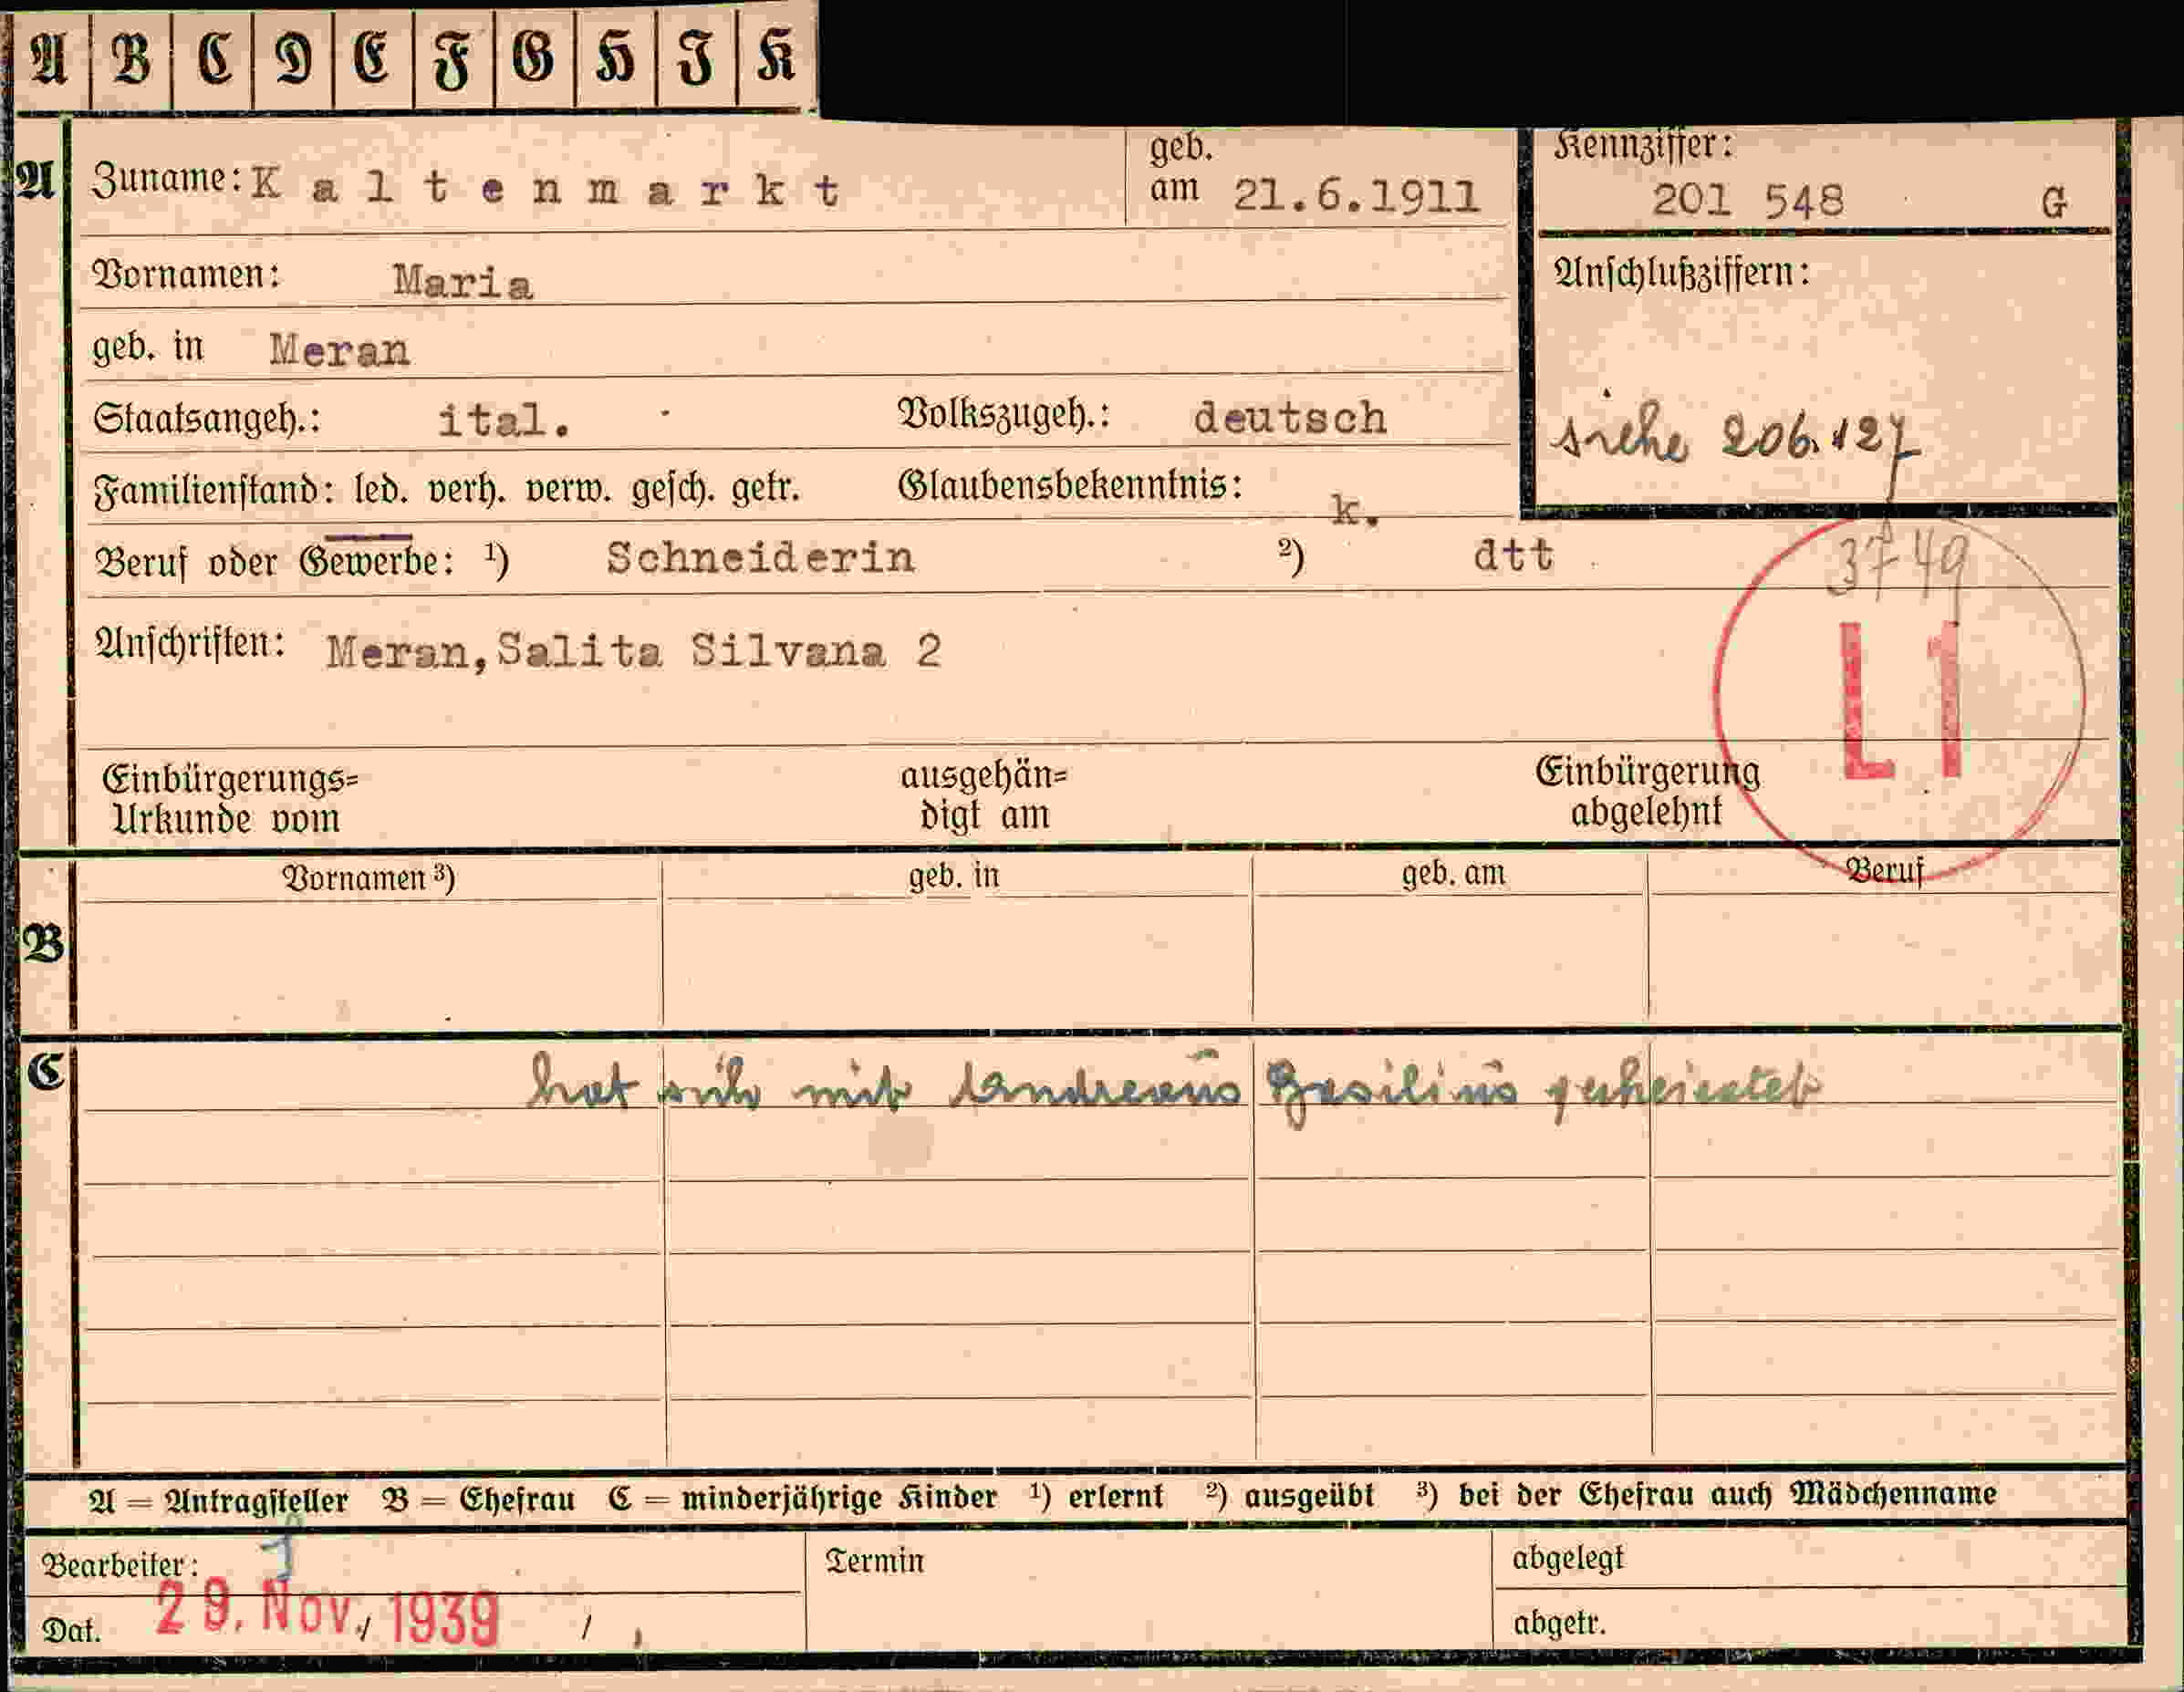 A B C D E F G H J K
A Zuname: Kaltenmarkt geb. am 21.6.1911
Kennziffer: 201 548 G
Vornamen: Maria
Anschlußziffern:
geb. in Meran
Staatsangeh.: ital. Volkszugeh.: deutsch
siehe 206.127
Familienstand: led. verh. verw. gesch. getr. Glaubensbekenntnis: k.
Beruf oder Gewerbe: ¹) Schneiderin ²) dtt
3749
Anschriften: Meran, Salita Silvana 2
L1
Einbürgerungs=
Urkunde vom
ausgehän=
digt am
Einbürgerung
abgelehnt
Vornamen ³) geb. in geb. am Beruf
B
C hat sich mit Basilius geheiratet
A = Antragsteller B = Ehefrau C = minderjährige Kinder ¹) erlernt ²) ausgeübt ³) bei der Ehefrau auch Mädchenname
Bearbeiter: Termin abgelegt
Dat. 29. Nov. 1939 abgetr.